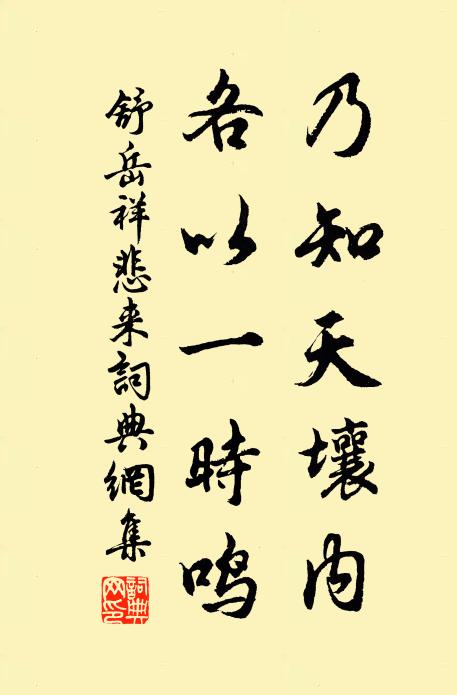 乃知天壤内
各以一時鸣
舒岳祥悲来詞典網集
詞典网印